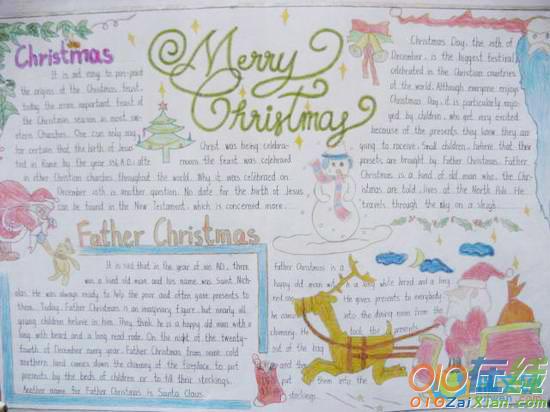 Christmas
Merry
Christmas
It is not easy to pin-point
the origins of the Christmas feast,
today the most important feast of
the Christmas season in most wes-
tern Churches. One can only say
for certain that the birth of Jesus
Christ was being celebra-
ted in Rome by the year 336 A.D. afte
moon the feast was celebrated
in other Christian churches throughout the world. Why it was celebrated on
December 25th is another question. No date for the birth of Jesus
can be found in the New Testament, which is concerned more
Christmas Day, the 25th of
December, is the biggest festival
celebrated in the Christian countries
of the world. Although everyone enjoys
Christmas Day, it is particularly enjo-
yed by children, who get very excited
because of the presents they know they are
going to receive. Small children believe that their
presents are brought by Father Christmas. Father
Christmas is a kind of old man who, the Chr-
istmas are told, lives at the North Pole. He
travels through the sky on a sleigh
Father Christmas
It is said that in the year of 300 A.D., there
was a kind old man and his name was Saint Nich-
olas. He was always ready to help the poor and often gave presents to
them. Today, Father Christmas is an imaginary figure, but nearly all
young children believe in him. They think he is a happy old man with a
long with beard and a long read robe. On the night of the twenty-
fourth of December every year, Father Christmas from some cold
northern land comes down the chimney of the fireplace to put
presents by the beds of children or to fill their stockings.
Another name for Father Christmas is Santa Claus.
Father Christmas is a
happy old man with a long white beard and a long
red
He gives presents to everybody.
he comes
into the dining room from the
chimney. He
took the presents
out of the bag
and then
and the
put them into the
stockings.
010在线
010ZaiXian.com